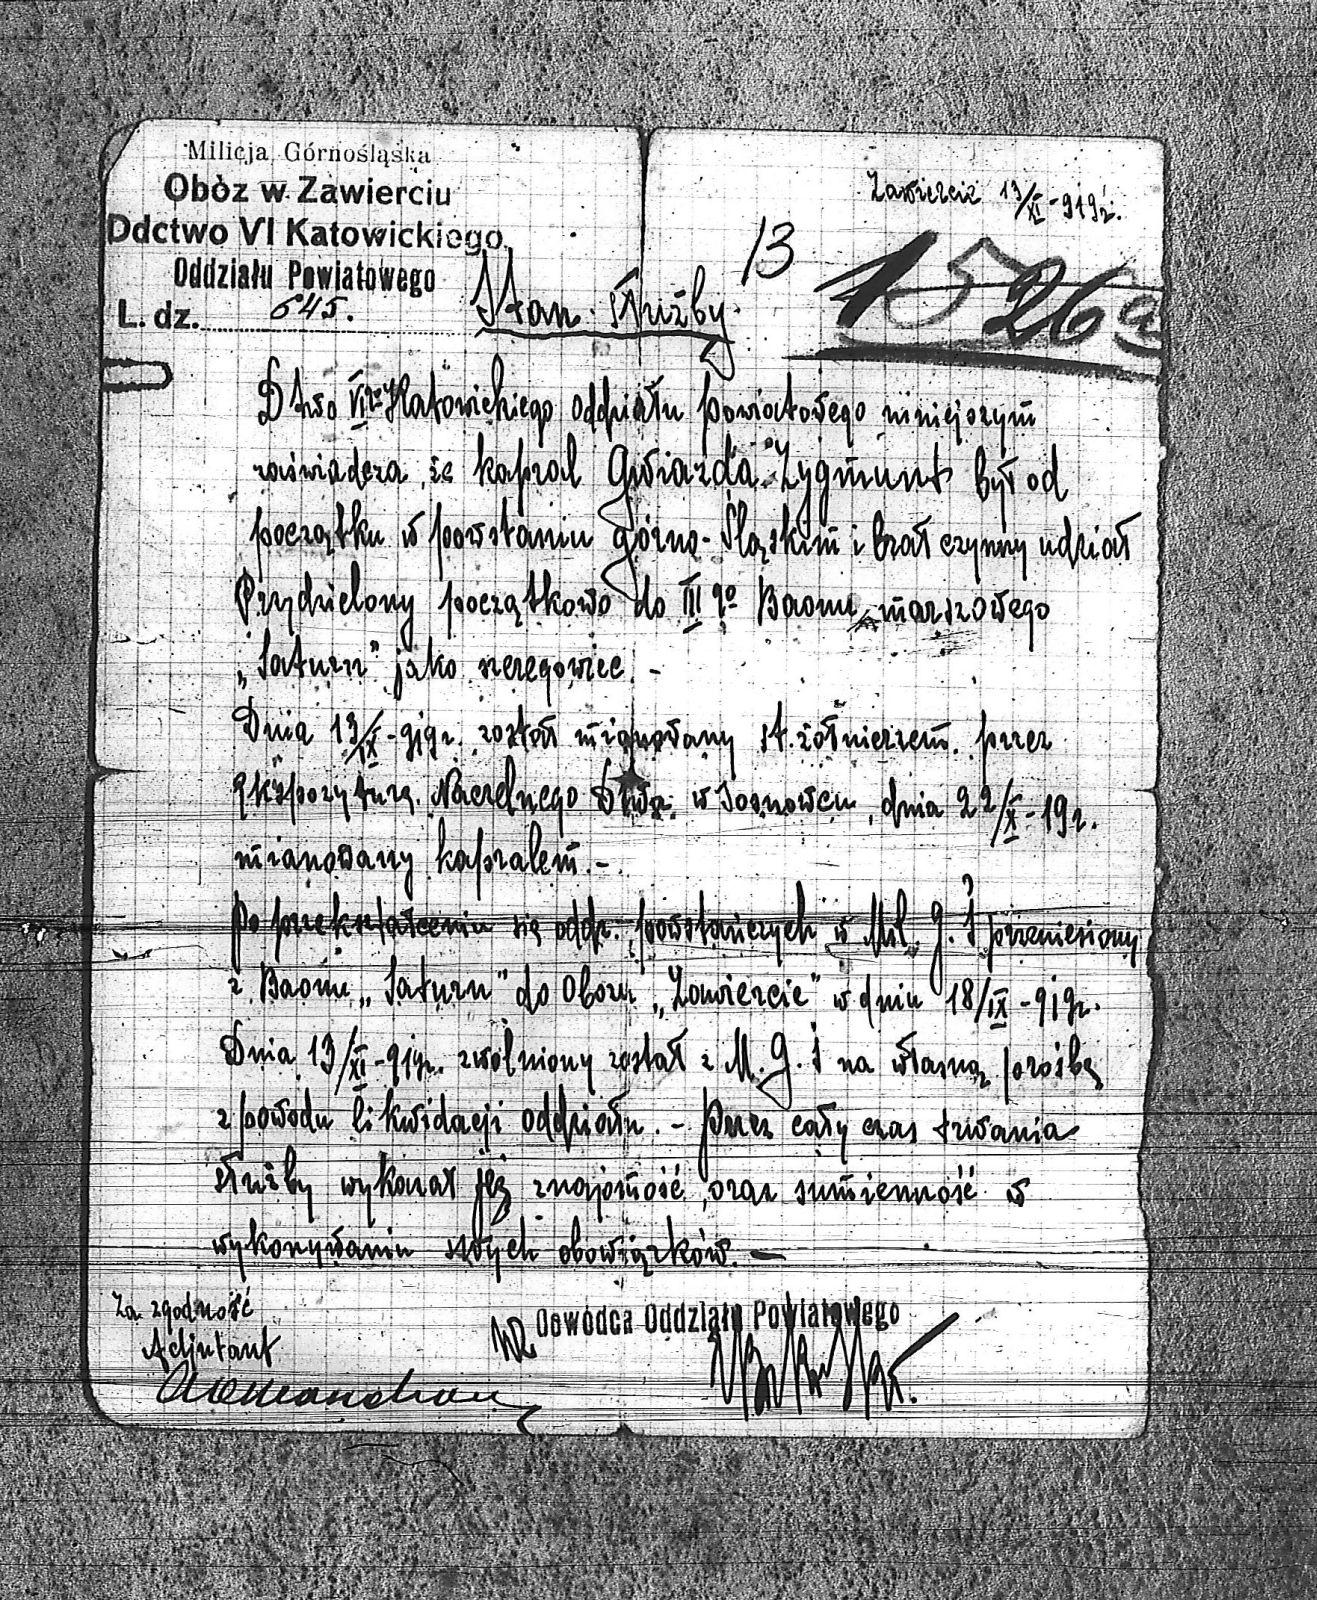 Milicja Górnośląska
Obóz w Zawierciu
Ddctwo VI Katowickiego
Oddziału Powiatowego
L. dz. 645.
Zawiercie 13/XI-919r.
13
1526
Stan służby
Dtwo VIgo Katowickiego oddziału powiatowego niniejszym
zaświadcza że kapral Gwiazda Zygmunt był od
początku w powstaniu górno-Śląskim i brał czynny udział
Przydzielony początkowo do III go Baonu marszowego
„Saturn” jako szeregowiec. -
Dnia 13/IX-919r. został mianowany st. żołnierzem. przez
ekspozyturę. Naczelnego Dtwa w Sosnowcu, dnia 22/X-19r.
mianowany kapralem. -
Po przekształceniu się oddz. powstańczych w Mil. G. Ś przeniesiony
z Baonu „Saturn” do Obozu „Zawiercie” w dniu 18/IX-919r.
Dnia 13/XI-919r. zwolniony został z M. G. Ś na własną prośbę
z powodu likwidacji oddziału. - Przez cały czas trwania
służby wykonał jej znajomość, oraz sumienność w
wykonywaniu swych obowiązków. -
Za zgodność
Adjutant
Dowódca Oddziału Powiatowego